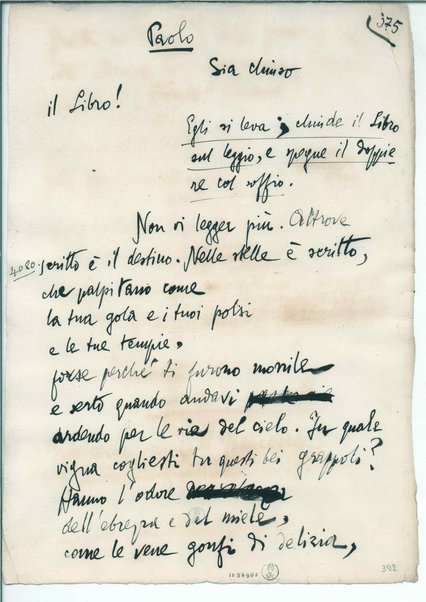 375
Paolo
Sia chiuso
il Libro!
Egli si leva; chiude il Libro
sul leggio, e spegne il doppie
re col soffio.
Non si legger più. Altrove
4080. scritto è il destino. Nelle stelle è scritto,
che palpitano come
la tua gola e i tuoi polsi
e le tue tempie,
forse perchè ti furono monile
e serto quando andavi
ardendo per le vie del cielo. In quale
vigna cogliesti tu questi bei grappoli?
Hanno l'odore
dell'ebrezza e del miele,
come le vene gonfi di delizia,
392